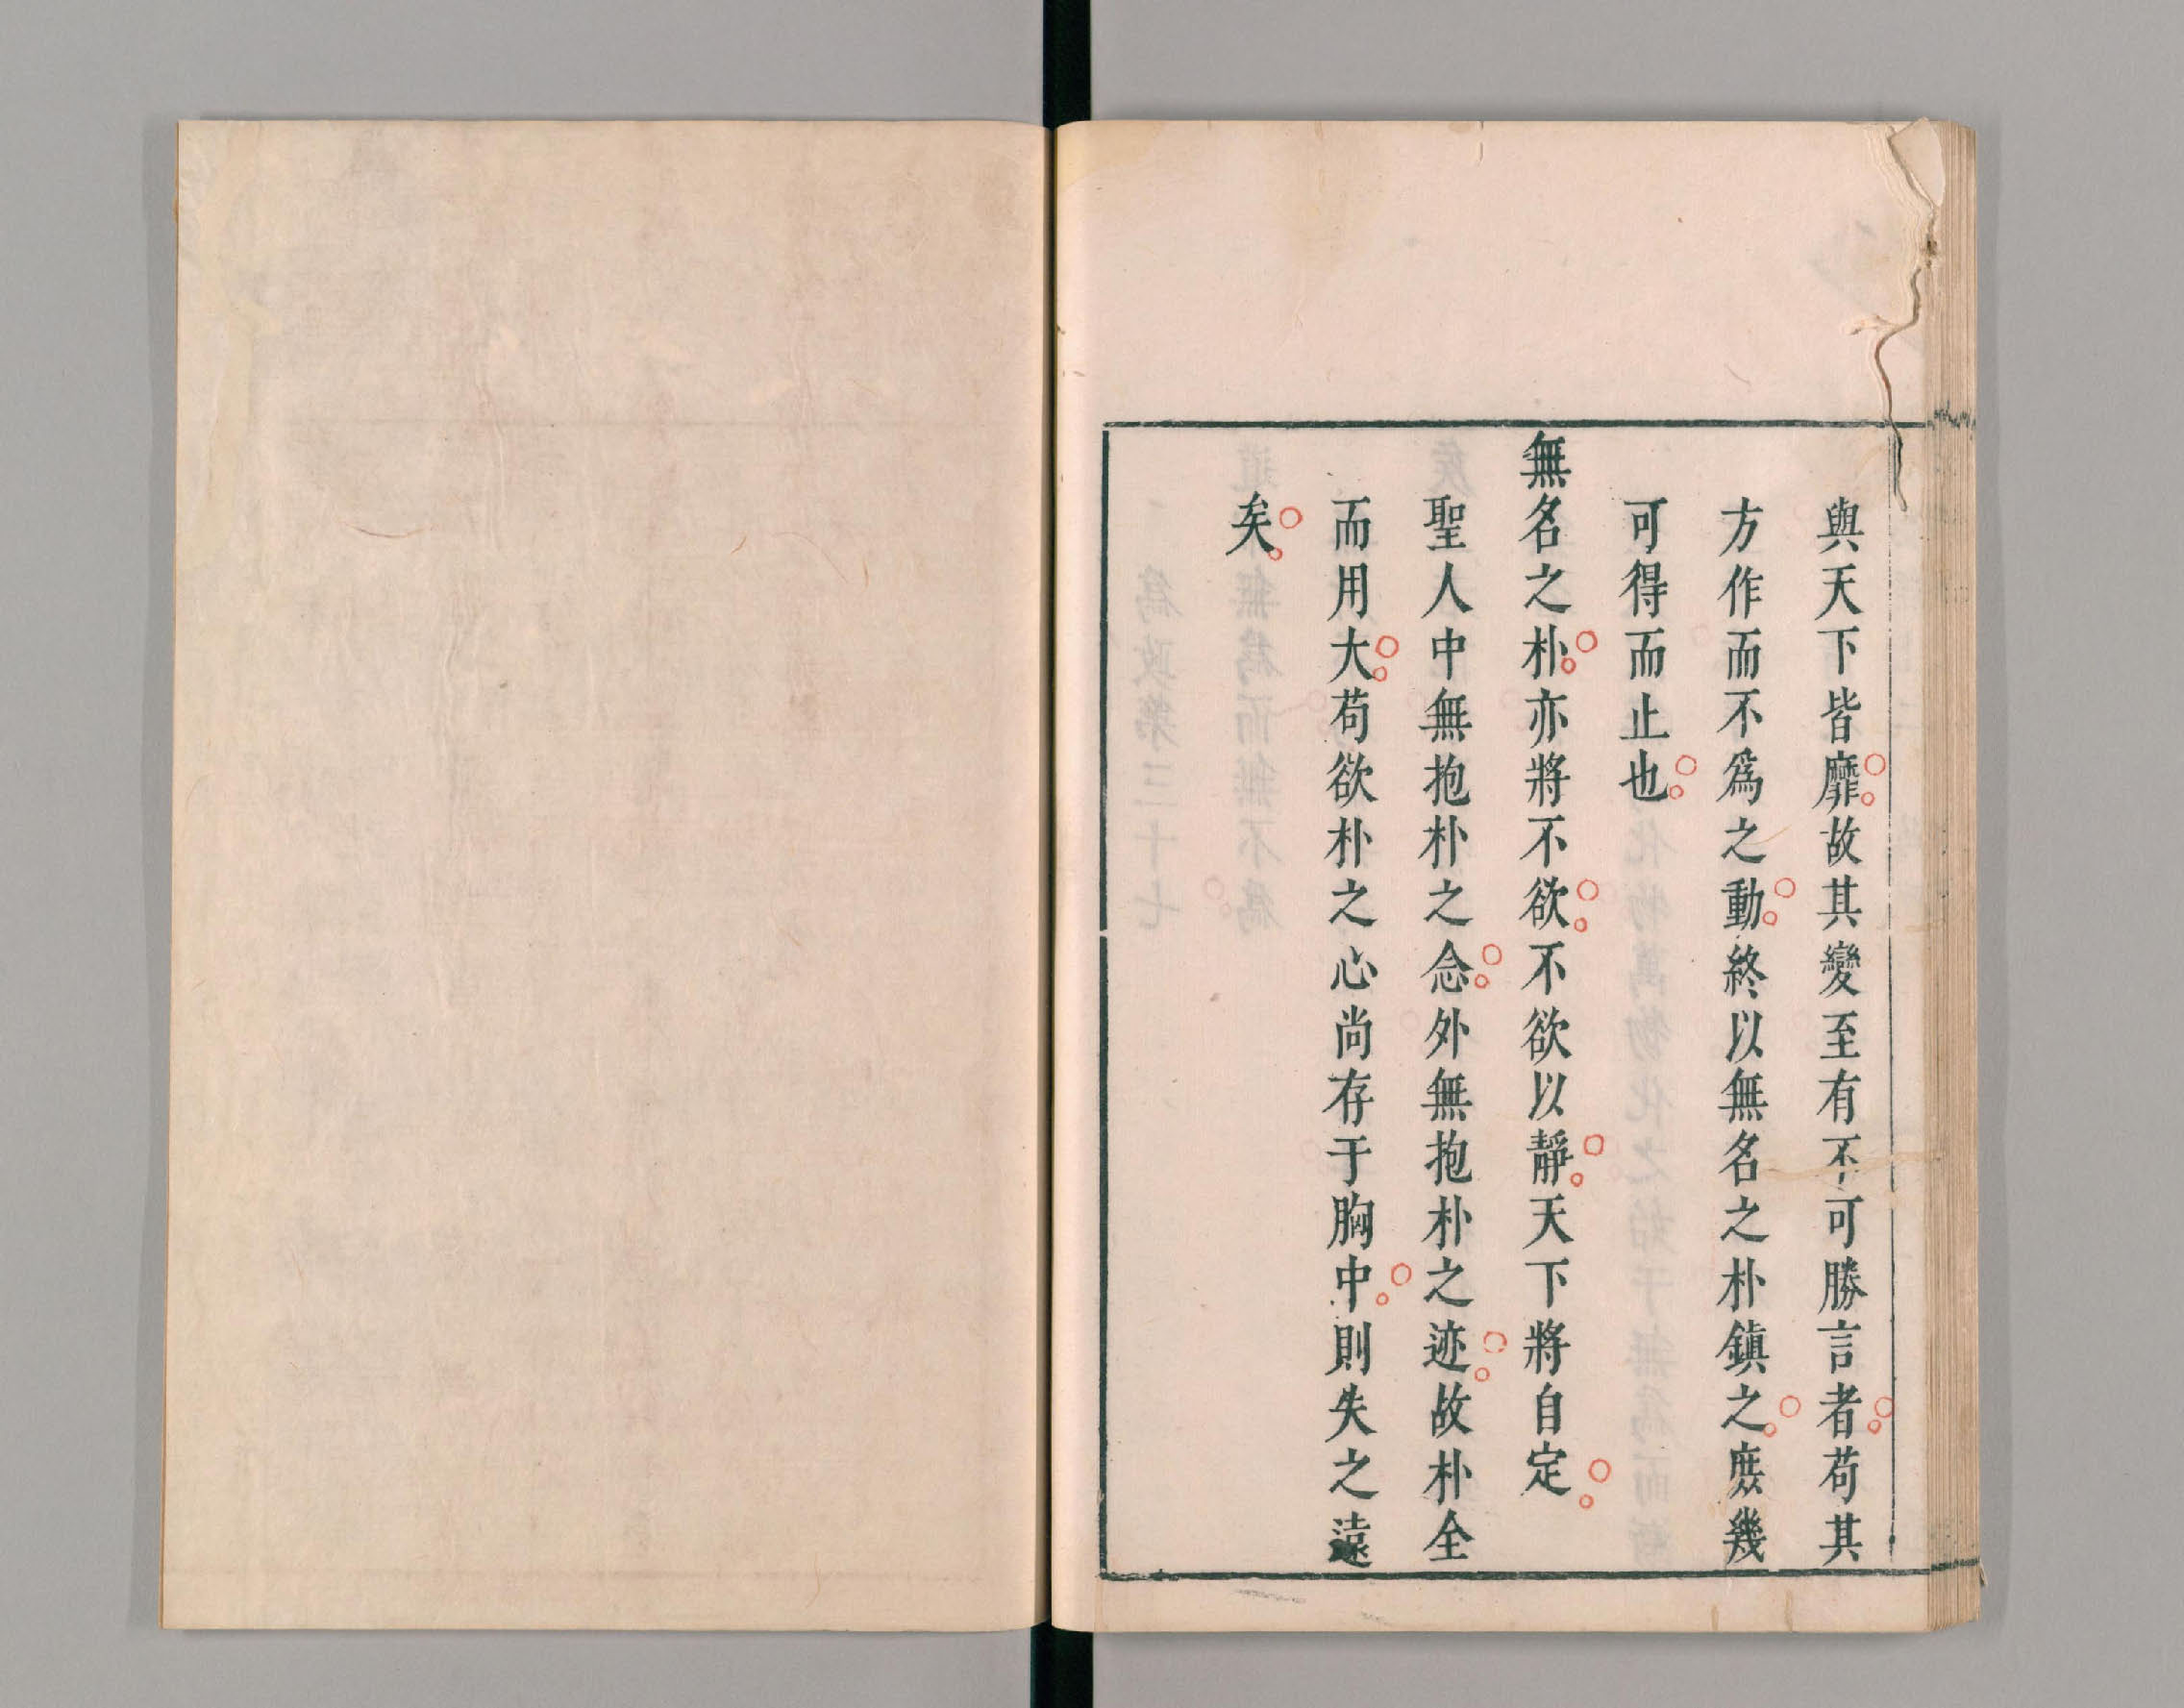 與天下皆靡故其變至有不可勝言者苟其
方作而不爲之動終以無名之朴鎭之庶幾
可得而止也
無名之朴亦將不欲不欲以靜天下將自定
聖人中無抱朴之念外無抱朴之迹故朴全
而用大苟欲朴之心尚存于胸中則失之遠
矣